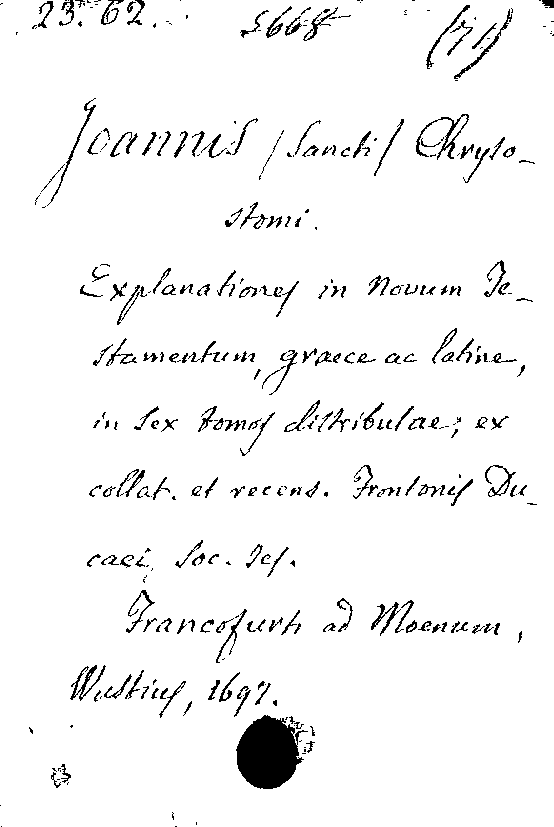 23. 62. 5668 (71)
Joannis /Sancti/ Chryso-
stomi.
Explanationes in Novum Te-
stamentum, graece ac latine,
in sex tomos distributae; ex
collat. et recens. Frontonis Du-
caei, Soc. Jes.
Francofurti ad Moenum,
Wustius, 1697.